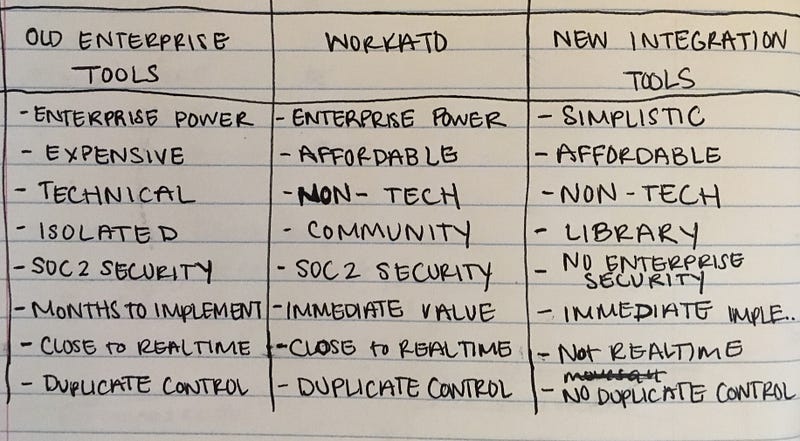 OLD ENTERPRISE
TOOLS
WORKATO
NEW INTEGRATION
TOOLS
- ENTERPRISE POWER
- ENTERPRISE POWER
- SIMPLISTIC
- EXPENSIVE
- AFFORDABLE
- AFFORDABLE
- TECHNICAL
- NON - TECH
- NON - TECH
- ISOLATED
- COMMUNITY
- LIBRARY
- SOC 2 SECURITY
- SOC 2 SECURITY
- NO ENTERPRISE
SECURITY
- MONTHS TO IMPLEMENT
- IMMEDIATE VALUE
- IMMEDIATE IMPLE..
- CLOSE to REALTIME
- CLOSE to REALTIME
- Not REALTIME
- DUPLICATE CONTROL
- DUPLICATE CONTROL
- NO DUPLICATE CONTROL